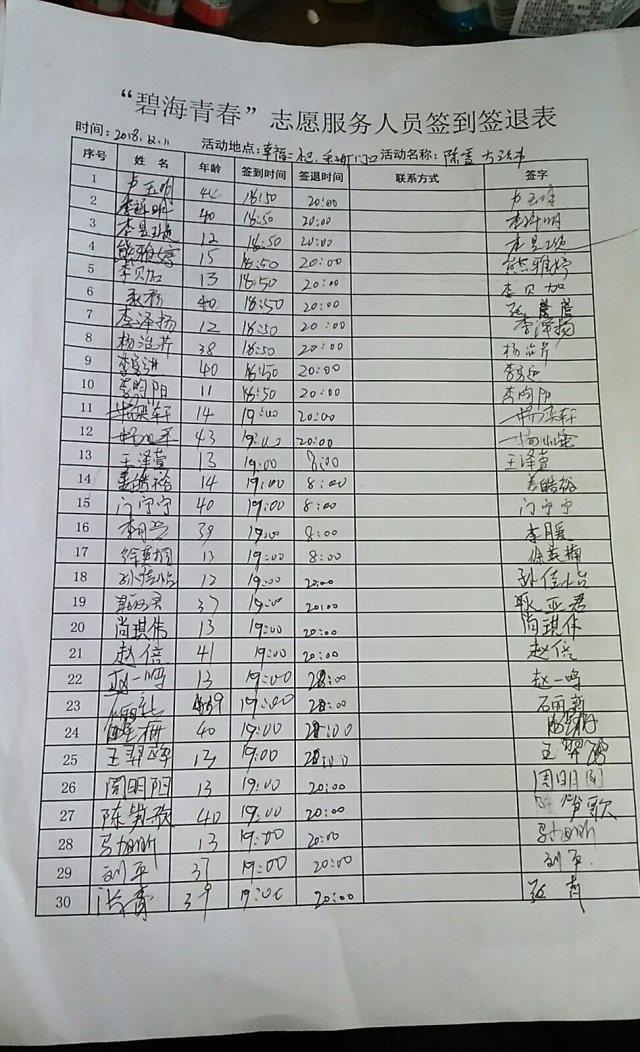 “碧海青春”志愿服务人员签到签退表
时间：2018.12.11 活动地点：幸福二社 门口 活动名称：除雪
序号 姓名 年龄 签到时间 签退时间 联系方式 签字
1 卢玉 44 18:50 20:00 卢玉
2 李 明 40 18:50 20:00 李 明
3 李昱 12 18:50 20:00 李昱
4 熊雅婷 15 18:50 20:00 熊雅婷
5 李贝加 13 18:50 20:00 李贝加
6 40 18:50 20:00 张
7 李泽扬 12 18:50 20:00 李泽扬
8 杨治芹 38 18:50 20:00 杨治芹
9 李 40 18:50 20:00 李
10 李昀阳 11 18:50 20:00 李昀阳
11 杨奕轩 14 19:00 20:00 杨奕轩
12 杨 43 19:00 20:00 杨
13 王泽萱 13 19:00 8:00 王泽萱
14 姜皓裕 14 19:00 8:00 姜皓裕
15 门宁宁 40 19:00 8:00 门宁宁
16 李月 39 19:00 8:00 李月
17 徐 13 19:00 8:00 徐
18 孙佳怡 12 19:00 20:00 孙佳怡
19 耿亚君 37 19:00 20:00 耿亚君
20 尚琪伟 13 19:00 20:00 尚琪伟
21 赵倍 41 19:00 20:00 赵倍
22 赵一鸣 13 19:00 20:00 赵一鸣
23 39 19:00 20:00 石丽新
24 40 19:00 20:00
25 王羿 13 19:00 20:00 王羿
26 周明阳 13 19:00 20:00 周明阳
27 陈笋歌 40 19:00 20:00 陈笋歌
28 马如昕 13 19:00 20:00 马如昕
29 刘平 37 19:00 20:00 刘平
30 39 19:00 20:00 张青